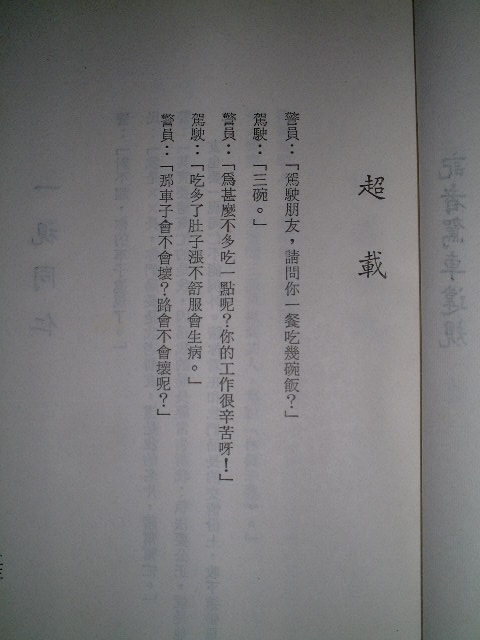 超載
警員：「駕駛朋友，請問你一餐吃幾碗飯？」
駕駛：「三碗。」
警員：「爲甚麼不多吃一點呢？你的工作很辛苦呀！」
駕駛：「吃多了肚子漲不舒服會生病。」
警員：「那車子會不會壞？路會不會壞呢？」